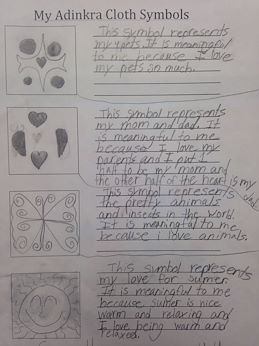 My Adinkra Cloth Symbols
This symbol represents
my pets. It is meaningful
to me because I love
my pets so much.
This symbol represents
my mom and dad. It
is meaningful to me
because I love my
parents and I put 1
half to be my mom and
the other half of the heart is my
dad
This symbol represents
the pretty animals
and insects in the world.
It is meaningful to me
because i love animals.
This symbol represents
my love for sumer.
It is meaningful to me
because sumer is nice
warm and relaxing and
I love being warm and
relaxed.